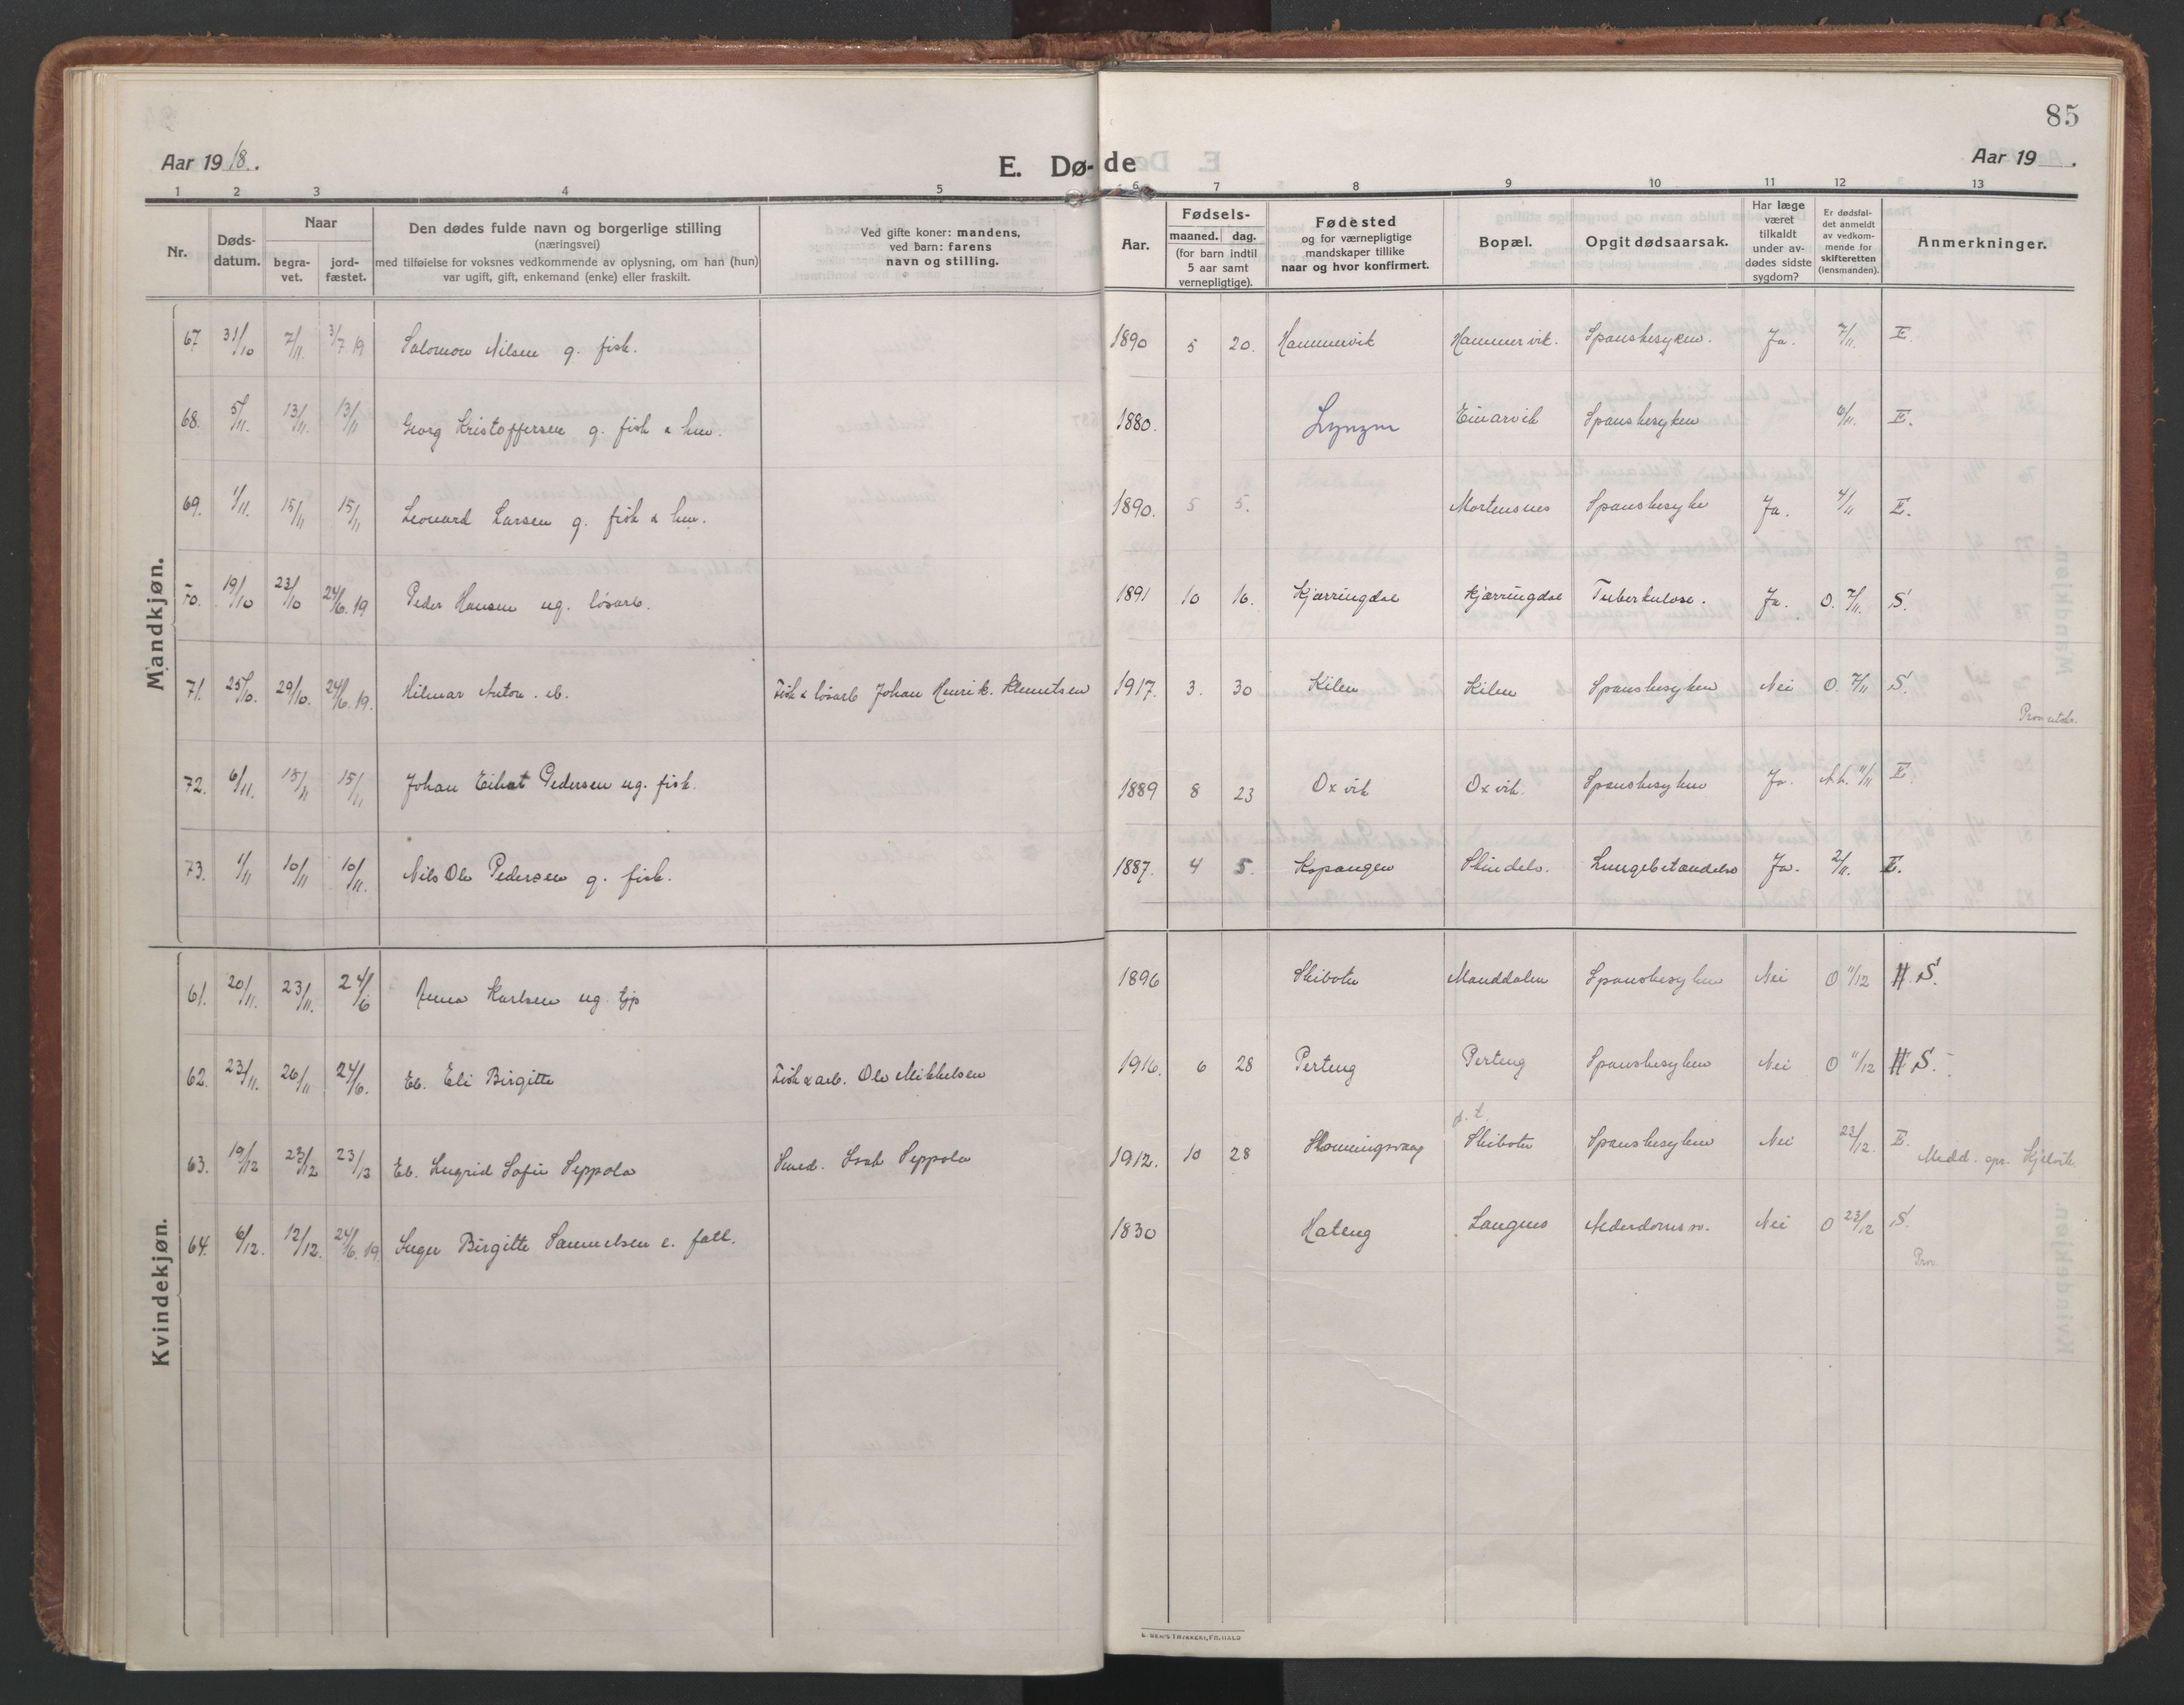 85
Aar 1918.
E. Dø-de
Aar 19 .
1 2 3 4 5 6 7 8 9 10 11 12 13
Nr.
Døds-
datum.
Naar
begra-
vet.
jord-
fæstet.
Den dødes fulde navn og borgerlige stilling
(næringsvei)
med tilføielse for voksnes vedkommende av oplysning, om han (hun)
var ugift, gift, enkemand (enke) eller fraskilt.
Ved gifte koner: mandens,
ved barn: farens
navn og stilling.
Aar.
Fødsels-
maaned. dag.
(for barn indtil
5 aar samt
vernepligtige).
Fødested
og for værnepligtige
mandskaper tillike
naar og hvor konfirmert.
Bopæl.
Opgit dødsaarsak.
Har læge
været
tilkaldt
under av-
dødes sidste
sygdom?
Er dødsfal-
det anmeldt
av vedkom-
mende for
skifteretten
(lensmanden).
Anmerkninger.
Mandkjøn.
67. 31/10 7/11. 3/7 19 Salomon Nilsen g. fisk. 1890 5 20. Hammervik Hammervik. Spanskesyken. Ja. 7/11. E.
68. 5/11. 13/11. 13/11 Georg Kristoffersen g. fisk & hus. 1880. Lyngen Einarvik Spanskesyken 6/11. E.
69. 1/11. 15/11 15/11 Leonard Larsen g. fisk & hus. 1890. 5 5. Mortensnes Spanskesyke Ja. 4/11 E.
70. 19/10 23/10 24/6. 19 Peder Hansen ug. løsarb. 1891 10 16. Kjærringdal Kjærringdal Tuberkulose. Ja. O. 7/11. S.
71. 25/10. 29/10. 24/6. 19. Hilmar Anton. eb. Fisk & løsarb Johan Henrik Klemetsen 1917. 3. 30 Kilen Kilen Spanskesyken Nei O. 7/11 S.
72. 6/11. 15/11 15/11 Johan Eihat Pedersen ug. fisk. 1889 8 23 Oxvik Oxvik. Spanskesyken Ja. 11/11 E.
73. 1/11 10/11 10/11. Nils Ole Pedersen g. fisk. 1887. 4 5. Kopangen Skindelv. Lungebetændelse Ja. 2/11. E.
Kvindekjøn.
61. 20/11. 23/11. 24/6 Anna Karlsen ug. tjp 1896 Skibotn Manddalen Spanskesyken Nei O 11/12 S.
62. 23/11. 26/11 24/6. Eb. Eli Birgitte Fisk & arb. Ole Mikkelsen 1916. 6 28 Perteng Perteng Spanskesyken Nei O 11/12 S.
63. 19/12 23/12 23/12 Eb. Ingrid Sofie Seppola Smed. Isak Seppola 1912. 10 28 Honningsvaag p. t. Skibotn Spanskesyken Nei 23/12. E. Medd. spr. Kjelvik
64. 6/12. 12/12. 24/6. 19 Inger Birgitte Samuelsen e. fatt. 1830 Hateng Langnes Alderdomssv. Nei O 23/12 S.
Prov.